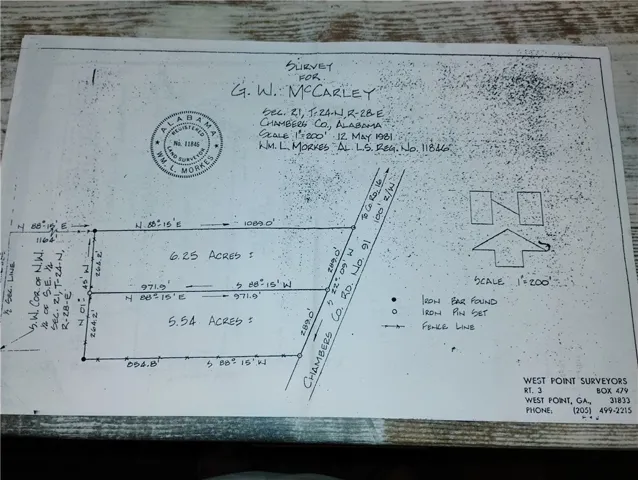 SURVEY
FOR
G. W. McCARLEY
SEC. 21, T-24-N, R-28-E
CHAMBERS CO., ALABAMA
SCALE 1"=200' 12 MAY 1981
WM. L. MORKES AL. L.S. REG. NO. 11846
ALABAMA
REGISTERED
No. 11846
LAND SURVEYOR
WM. L. MORKES
TO CO. RD. 16
100' R/W
N 88°-15' E
N 88°-15' E 1089.0'
6.25 ACRES ±
264.2'
289.0'
S 22°-09' W
971.9' S 88°-15' W
N 88°-15' E 971.9'
5.54 ACRES ±
264.2'
289.0'
854.8' S 88°-15' W
CHAMBERS CO. RD. NO. 91
½ SEC. LINE
S.W. COR. OF N.W.
¼ OF S.E. ¼
SEC. 21, T-24-N,
R-28-E
N
SCALE 1"=200'
IRON BAR FOUND
IRON PIN SET
FENCE LINE
WEST POINT SURVEYORS
RT. 3 BOX 479
WEST POINT, GA., 31833
PHONE: (205) 499-2215